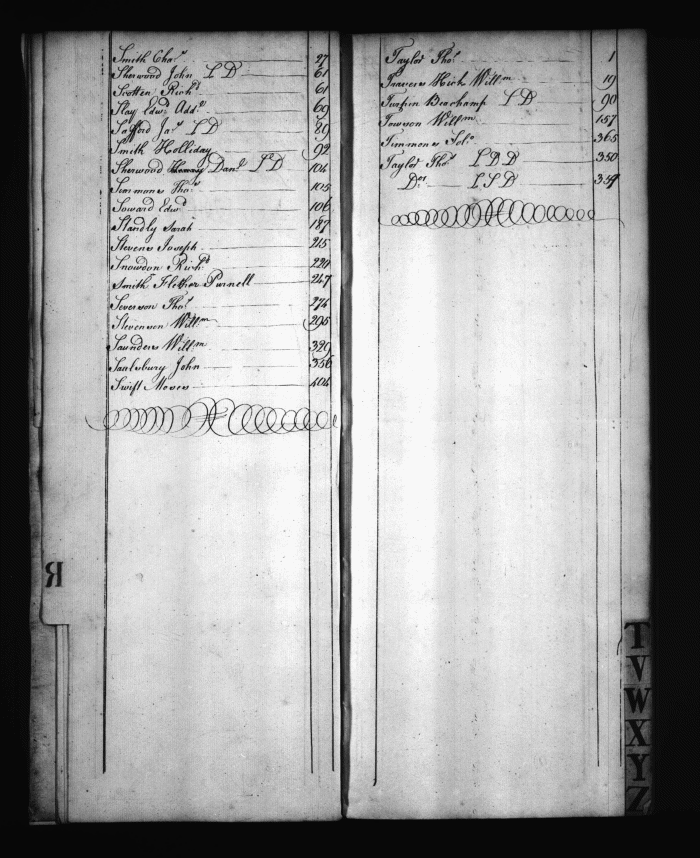 Smith Chas 27
Sherwood John L D 61
Scotten Richd 61
Slay Edwd Addn 69
Safford Jas L D 89
Smith Holliday 92
Sherwood Danl Ls D 104
Simmons Thos 105
Soward Edwd 106
Standly Sarah 187
Stevens Joseph 215
Snowdon Richd 220
Smith Flether Purnell 247
Severson Thos 274
Stevenson Willm 295
Saunders Willm 320
Saulsbury John 356
Swift Moses 404
R
Taylor Thos 1
Travers Hick Willm 19
Turpin Beachamp L D 90
Towson Willm 157
Timmons Solo 365
Taylor Thos L B D 350
Dor L S D 359
T
V
W
X
Y
Z